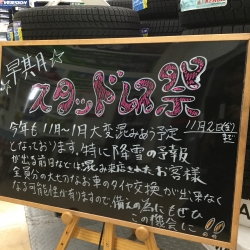 早期月
スタッドレス祭
今年も11月〜1月大変混みあう予定
11月2日(金)まで
となっております。特に降雪の予報
が出る前日などは混み
お客様
全員分の大切なお車のタイヤ交換が出来なく
なる可能性が有りますので、備えの為にもぜひ
この機会に!!